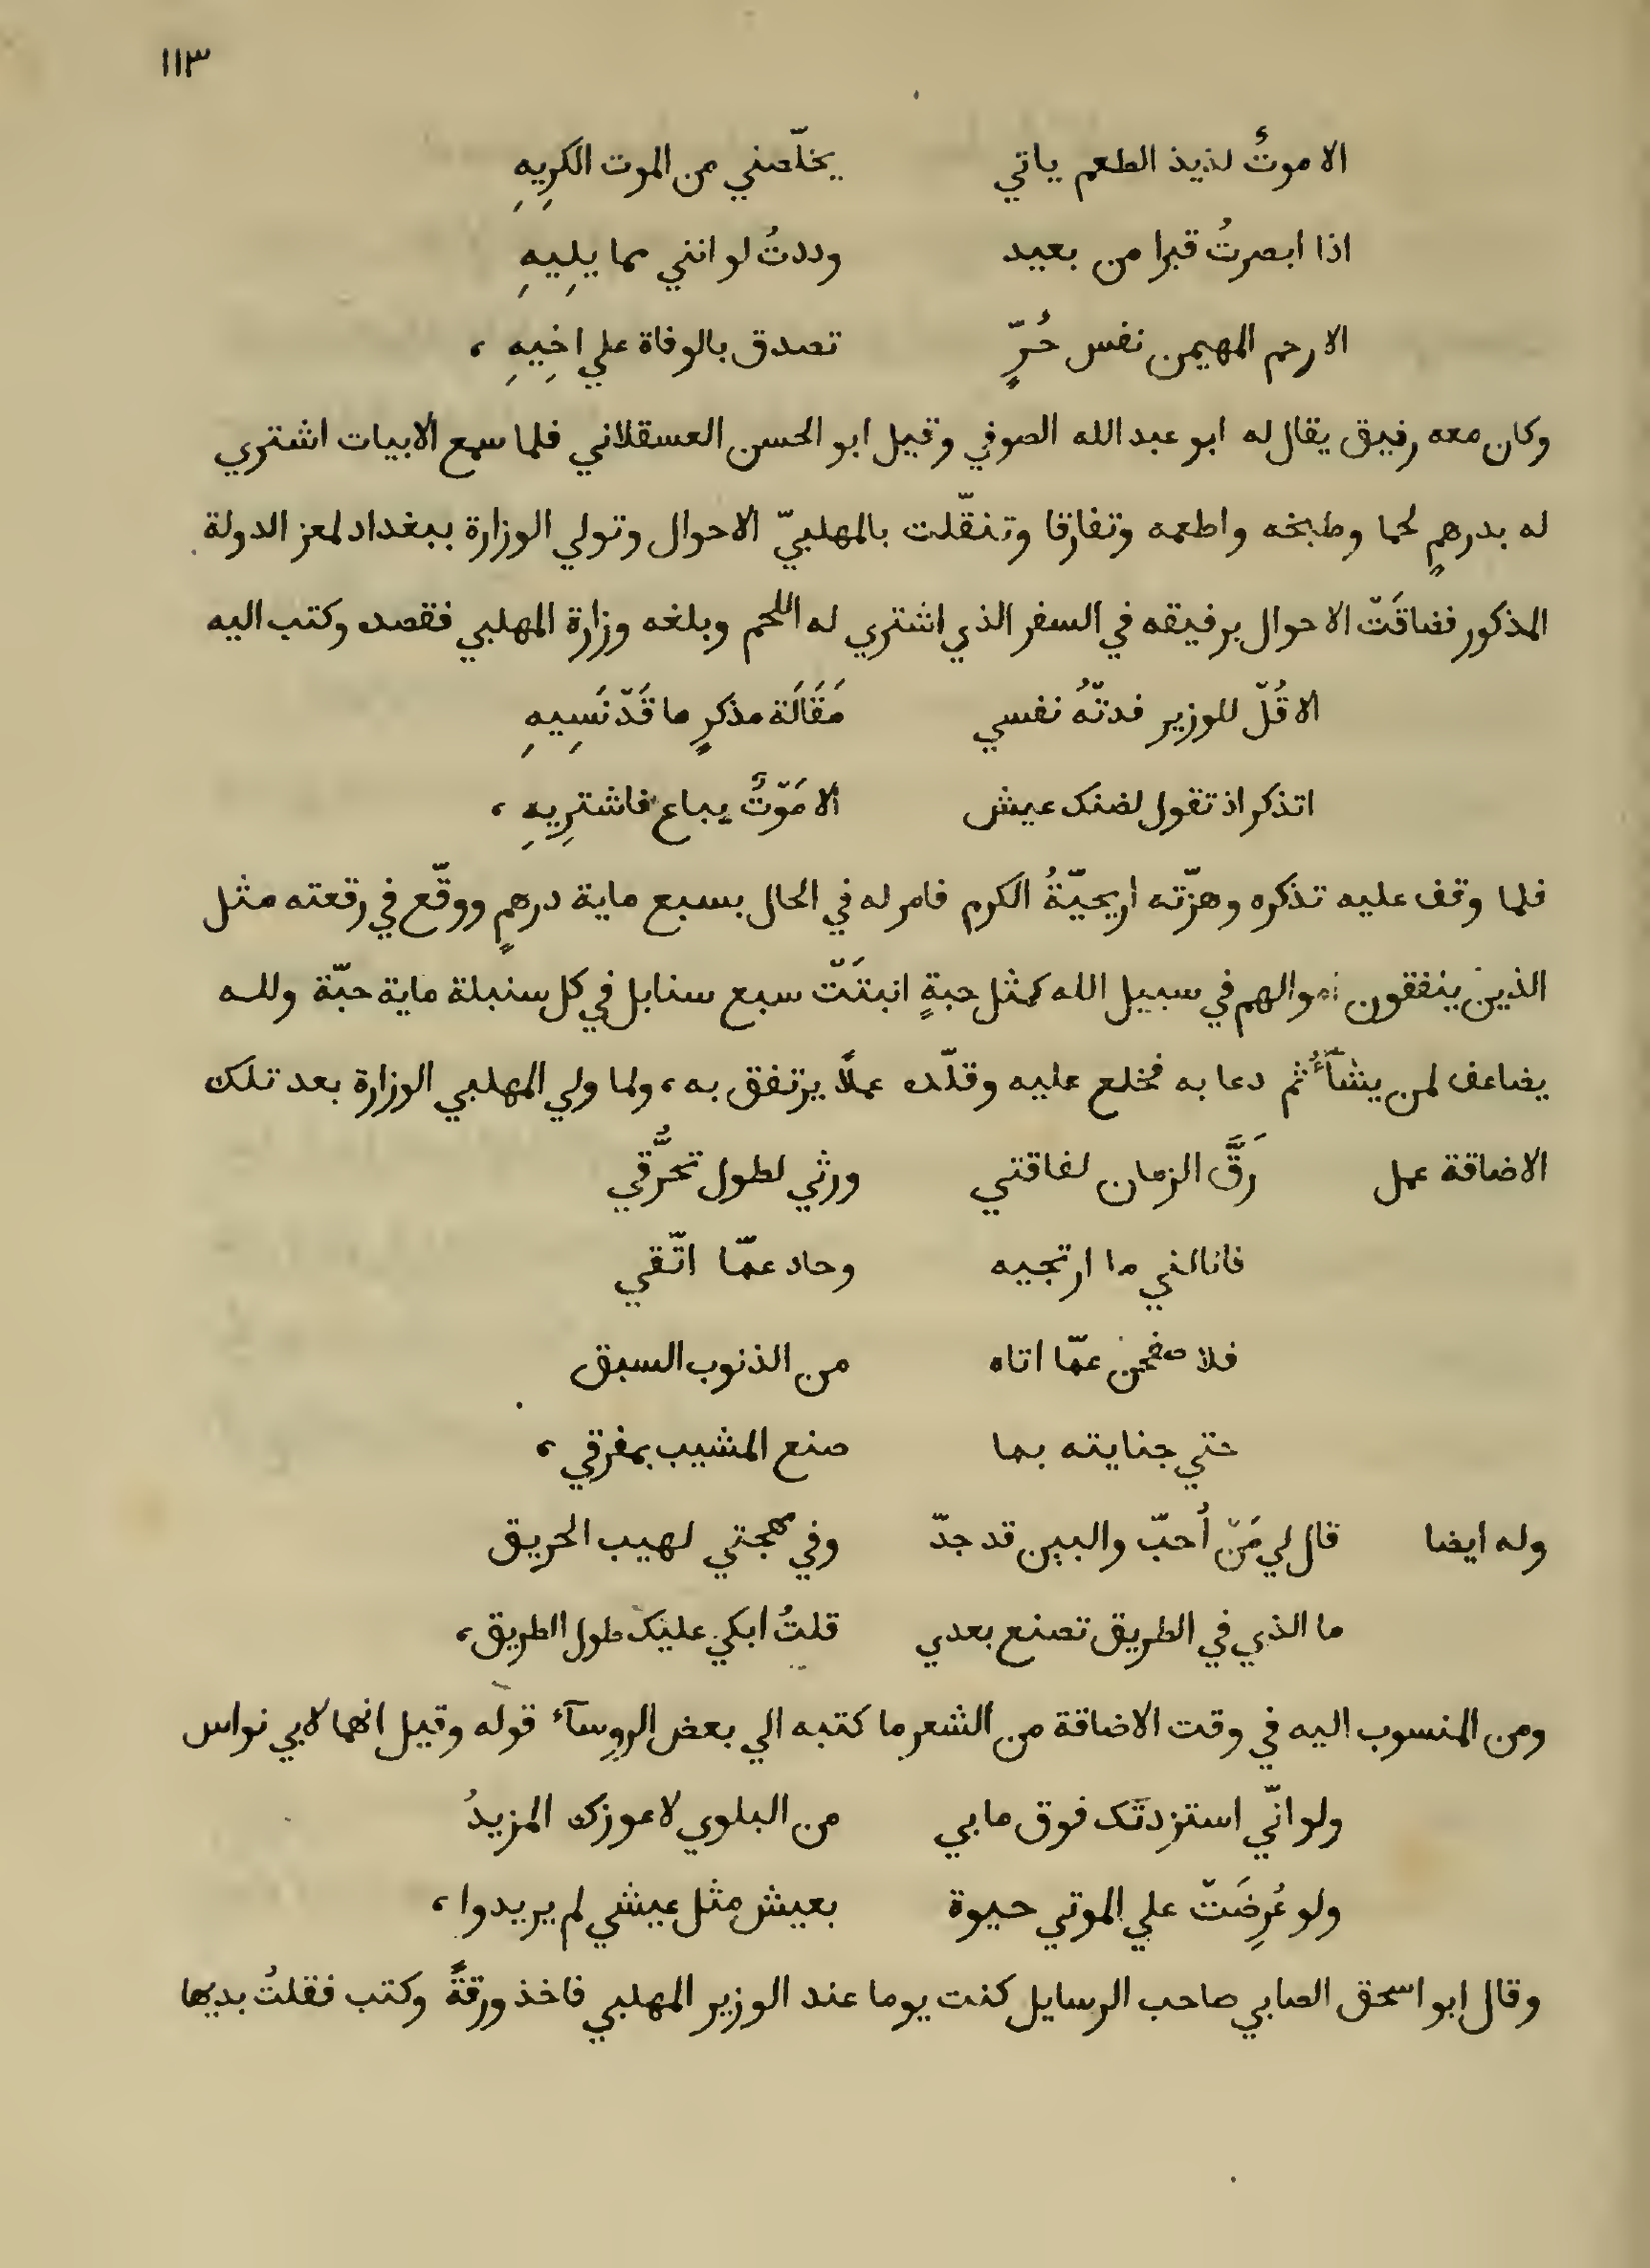 ١١٣
الا موتٌ لذيذ الطعم ياتي يخلّصني من الموت الكرِيهِ
اذا ابصرتُ قبرا من بعيد وددتُ لو انني مما يلِيهِ
الا رحم المهيمن نفس حُرّ تصدق بالوفاة علي اخِيهِ ،
وكان معه رفيق يقال له ابو عبد الله الصوفي وقيل ابو الحسن العسقلاني فلما سمع الابيات اشتري
له بدرهمٍ لحما وطبخه واطعمه وتفارقا وتنقّلت بالمهلبيّ الاحوال وتولي الوزارة ببغداد لمعز الدولة
المذكور فضاقَتْ الاحوال برفيقه في السفر الذي اشتري له اللحم وبلغه وزارة المهلبي فقصده وكتب اليه
الا قُلْ للوزير فدتْهُ نفسي مَقَالَة مذكرٍ ما قَدْ نَسِيهِ
اتذكر اذ تقول لضنك عيش الا مَوْتٌ يباع فاشترِيهِ ،
فلما وقف عليه تذكره وهزّته اريحيّةُ الكرم فامر له في الحال بسبع ماية درهمٍ ووقّع في رقعته مثل
الذين ينفقون اموالهم في سبيل الله كمثل حبةٍ انبتَتْ سبع سنابل في كل سنبلة ماية حبّة والله
يضاعف لمن يشآءُ ثم دعا به فخلع عليه وقلّده عملًا يرتفق به ، ولما ولي المهلبي الوزارة بعد تلك
الاضاقة عمل رَقَّ الزمان لفاقتي ورثي لطول تحرُّقي
فانالني ما ارتجيه وحاد عمّا اتّقي
فلاصفحن عمّا اتاه من الذنوب السبق
حتي جنايته بما صنع المشيب بمفرقي ،
وله ايضا قال لي مَنْ اُحبّ والبين قد جدّ وفي مهجتي لهيب الحريق
ما الذي في الطريق تصنع بعدي قلتُ ابكي عليك طول الطريق ،
ومن المنسوب اليه في وقت الاضاقة من الشعر ما كتبه الي بعض الروسآء قوله وقيل انهما لابي نواس
ولو انّي استزدتك فوق ما بي من البلوي لاعوزك المزيدُ
ولو عُرِضَتْ علي الموتي حيوة بعيش مثل عيشي لم يريدوا ،
وقال ابو اسحق الصابي صاحب الرسايل كنت يوما عند الوزير المهلبي فاخذ ورقةً وكتب فقلتُ بديها